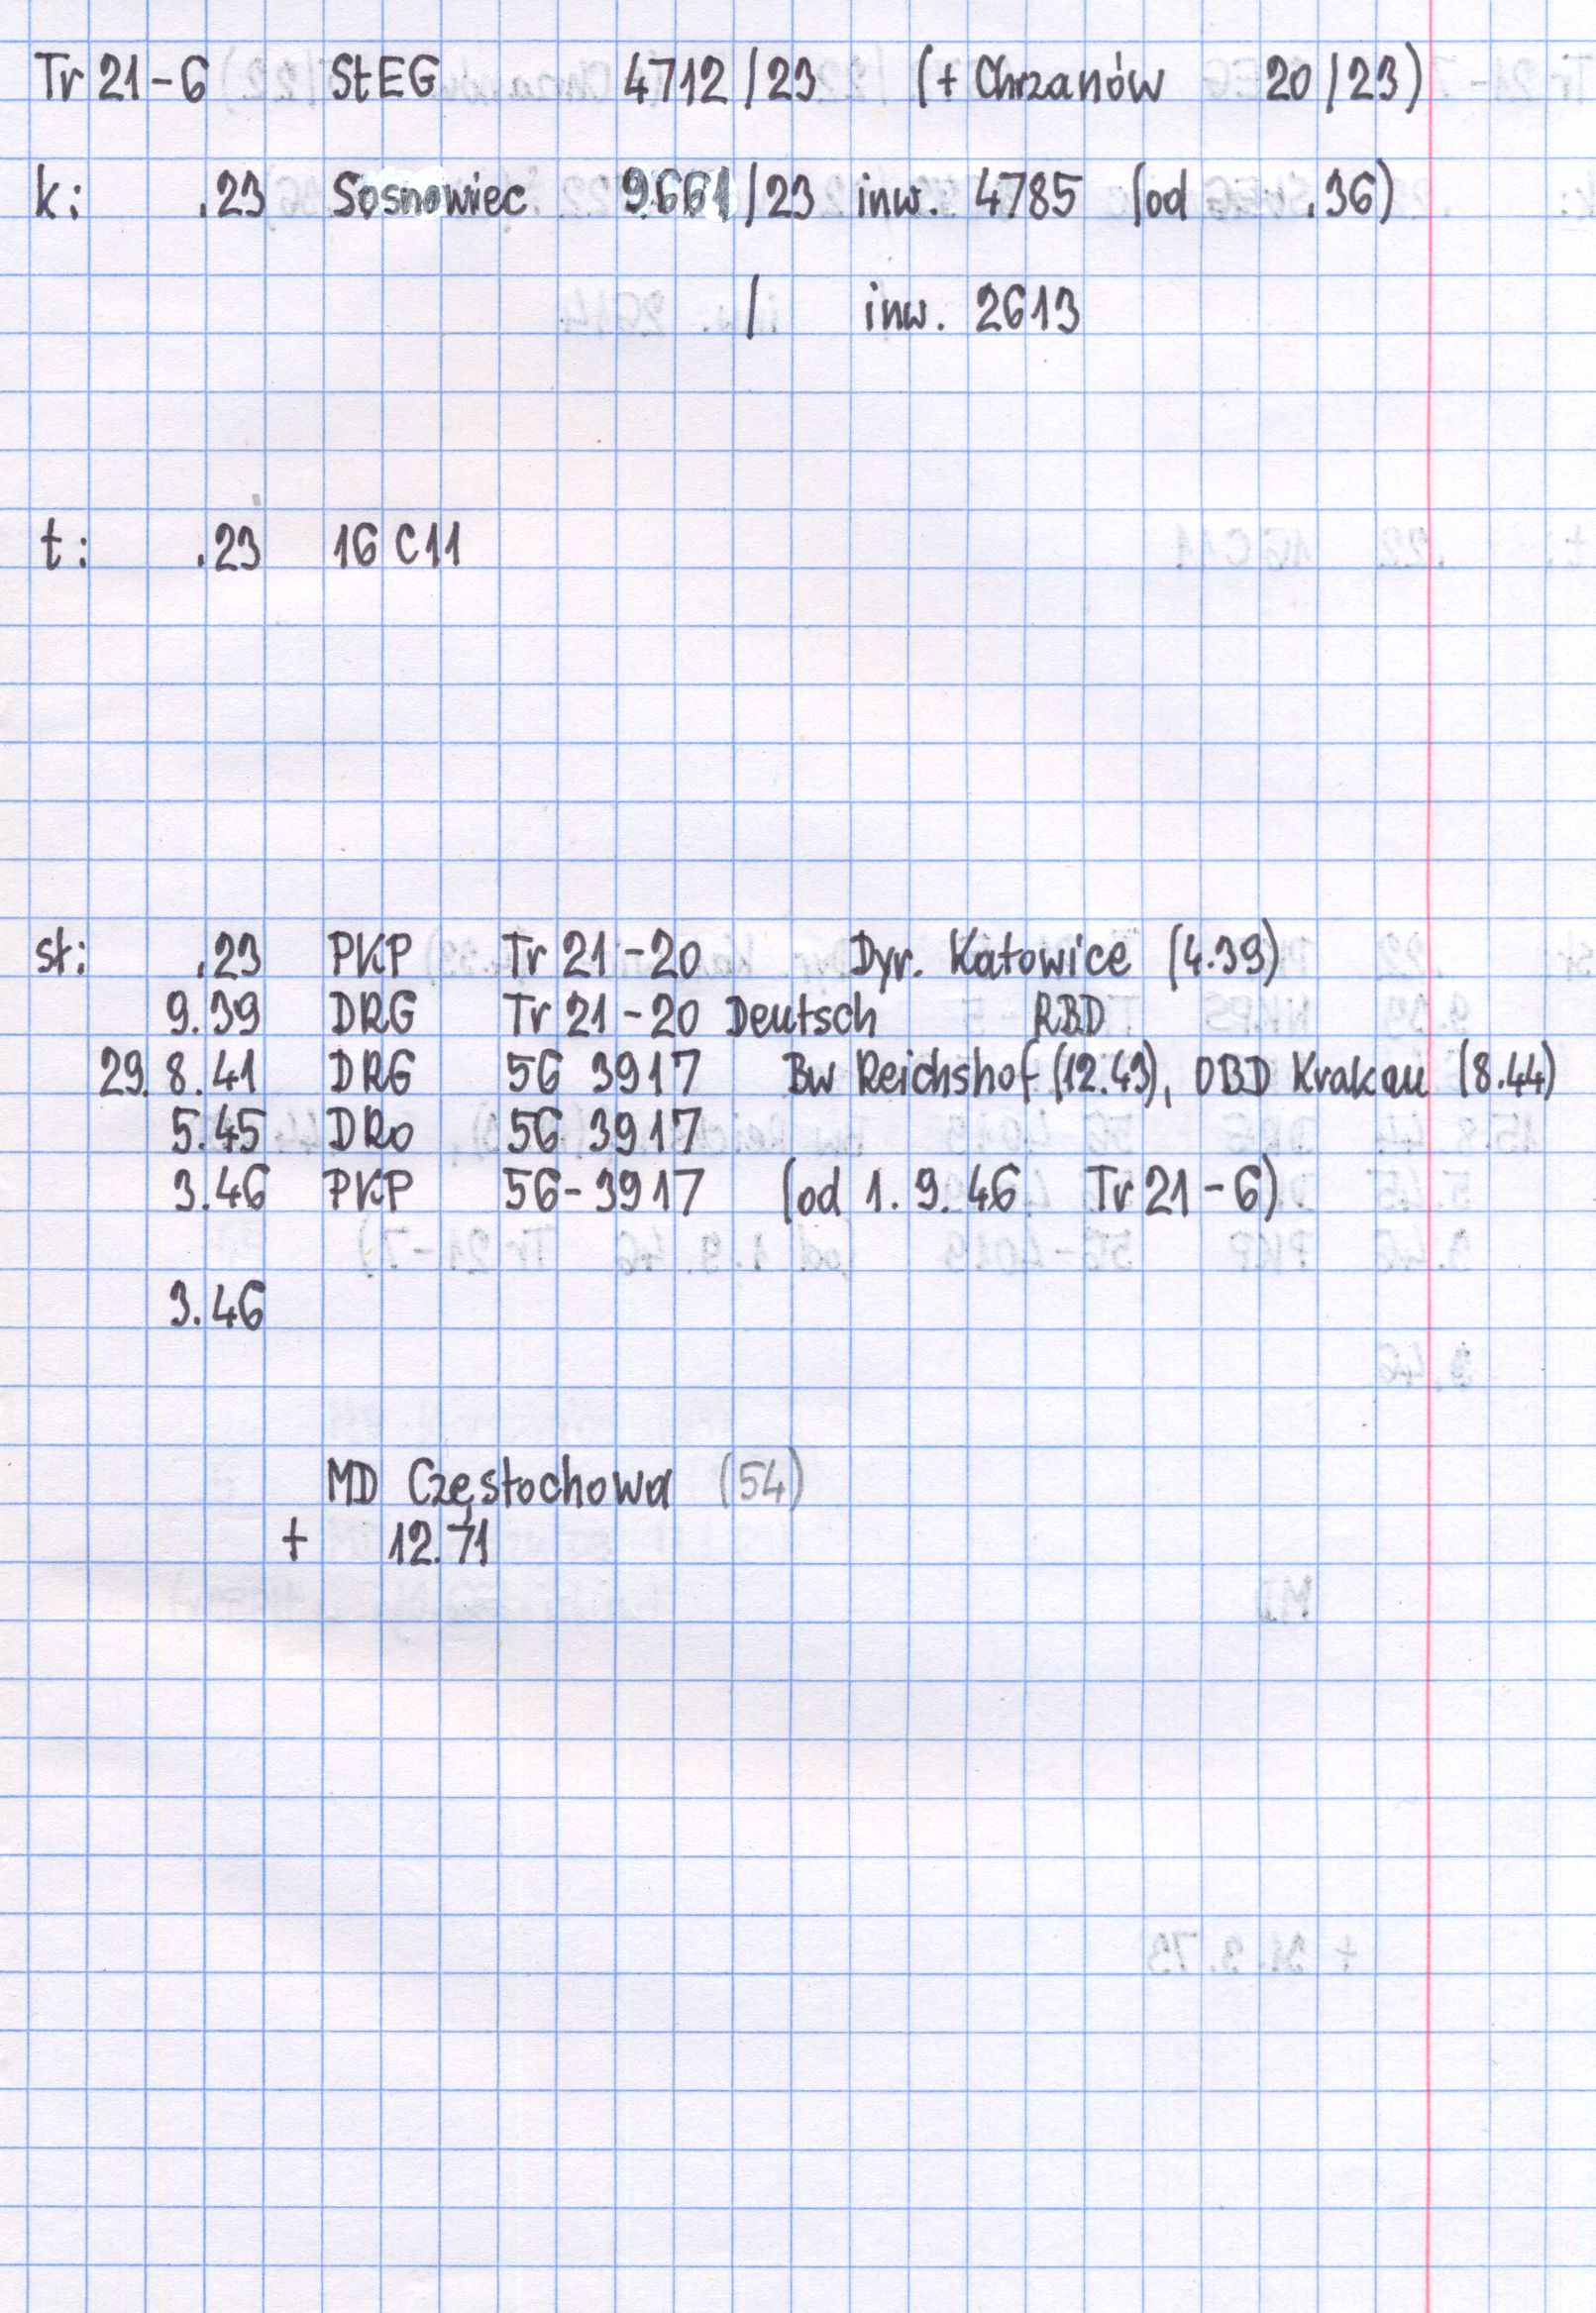 Tr 21-6 StEG 4712/23 (+ Chrzanów 20/23)
k: .23 Sosnowiec 9661/23 inw. 4785 (od .36)
/ inw. 2613
t: .23 16 C11
st: .23 PKP Tr 21-20 Dyr. Katowice (4.39)
9.39 DRG Tr 21-20 Deutsch RBD
29.8.41 DRG 56 3917 Bw Reichshof (12.43), OBD Krakau (8.44)
5.45 DRo 56 3917
3.46 PKP 56-3917 (od 1.9.46 Tr 21-6)
3.46
MD Częstochowa (54)
+ 12.71